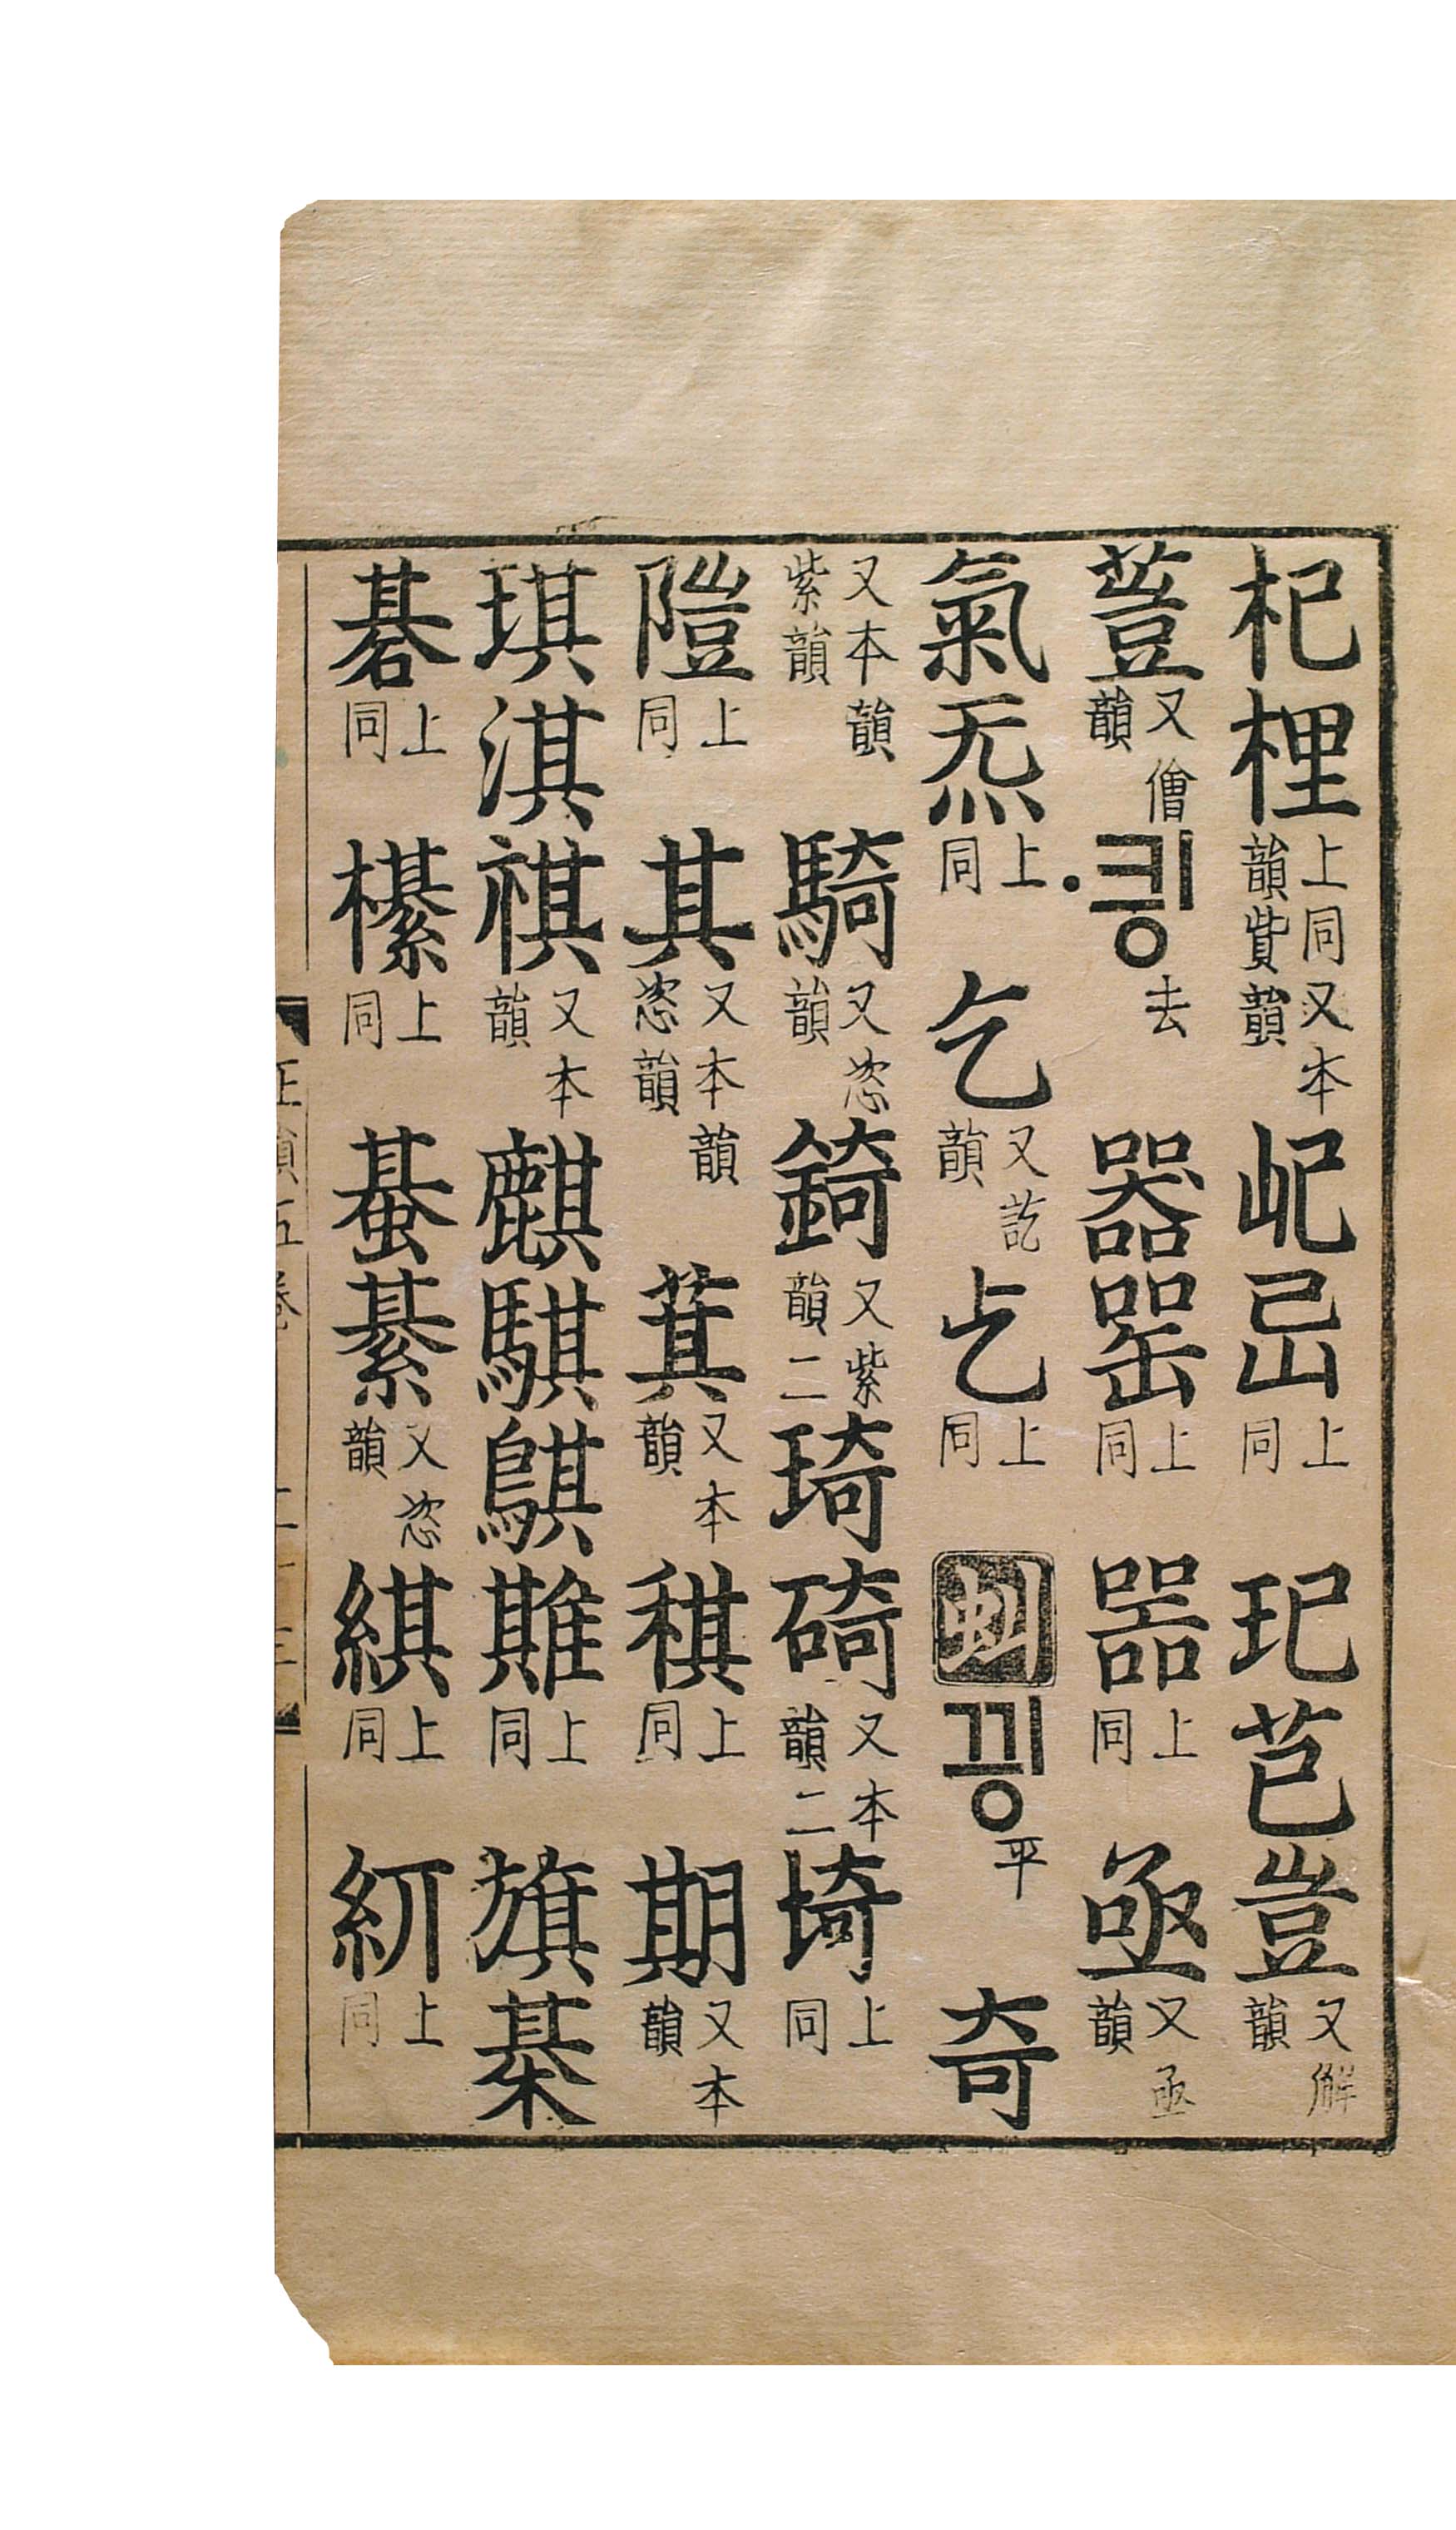 杞梩上同又本韻貲韻屺上同玘芑豈又獬韻
又韻킝去器上同噐上同亟又亟韻
氣炁上同乞又訖韻上同虯끵平奇
又本韻紫韻騎又恣韻錡又紫韻二琦碕又本韻二埼上同
隑上同其又本韻恣韻萁又本韻稘上同期又本韻
琪淇祺又本韻麒騏鶀上同旗棊
碁上同櫀上同綦又恣韻綨上同上同
正韻五卷